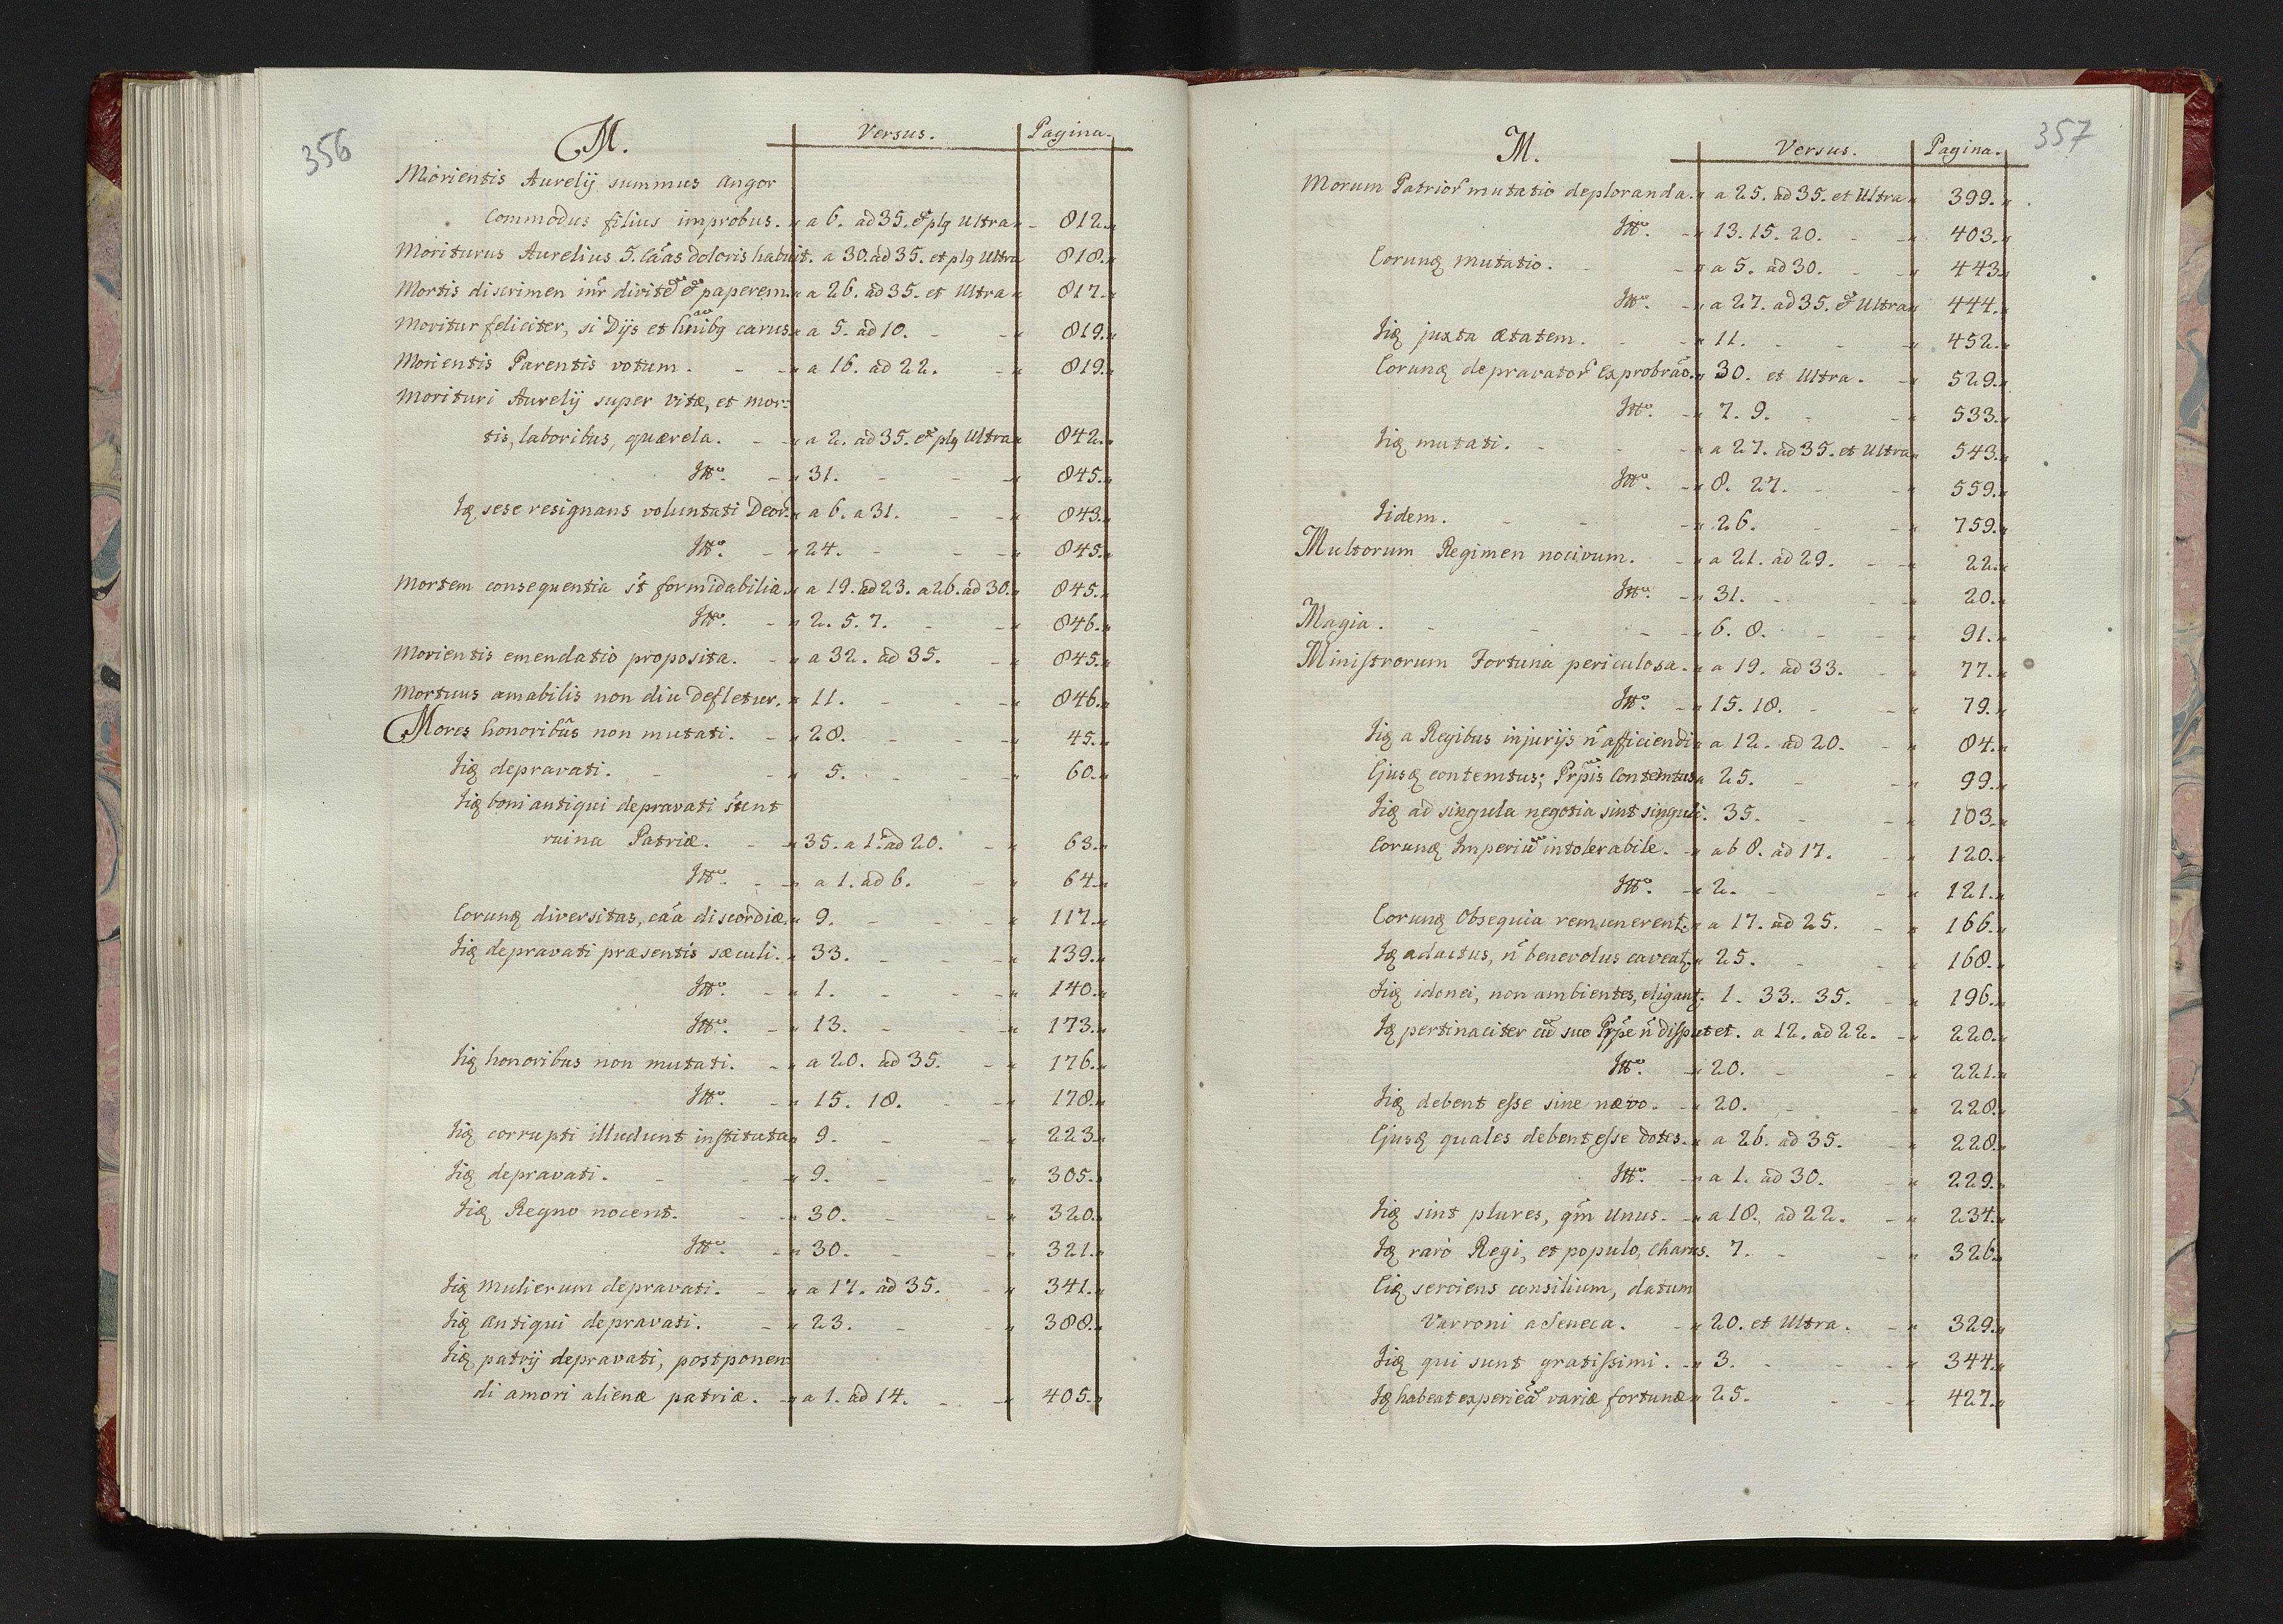 356
M. Versus. Pagina.
Morientis Aurelij summus angor
Commodus filius improbus. a 6. ad 35. et plq Ultra 812.
Moriturus Aurelius 5. cãas doloris habuit. a 30. ad 35. et plq Ultra 818.
Mortis discrimen inr̃ divitẽ et paperem. a 26. ad 35. et Ultra 817.
Moritur feliciter, si Dijs et hnibq carus a 5. ad 10. 819.
Morientis Parentis votum. a 16. ad 22. 819.
Morituri Aurelij super vitæ, et mor:
tis, laboribus, quærela. a 2. ad 35. et plq Ultra 842.
Itto. 31. 845.
Iq sese resignans voluntati Deor̃. a 6. a 31. 843.
Itto. 24. 845.
Mortem consequentia st̃ formidabilia. a 19. ad 23. a 26. ad 30. 845.
Itto. 2. 5. 7. 846.
Morientis emendatio proposita. a 32. ad 35. 845.
Mortuus amabilis non diu defletur. 11. 846.
Mores honoribus non mutati. 28. 45.
Iiq depravati. 5. 60.
Iiq boni antiqui depravati sunt
ruina Patriæ. 35. a 1. ad 20. 63.
Itto. a 1. ad 6. 64.
Eorunq diversitas, cãa discordiæ. 9. 117.
Iiq depravati præsentis sæculi. 33. 139.
Itto. 1. 140.
Itto. 13. 173.
Iiq honoribus non mutati. a 20. ad 35. 176.
Itto. 15. 18. 178.
Iiq corrupti illudunt instituta 9. 223.
Iiq depravati. 9. 305.
Iiq Regno nocent. 30. 320.
Itto. 30. 321.
Iiq mulierum depravati. a 17. ad 35. 341.
Iiq antiqui depravati. 23. 388.
Iiq patrij depravati, postponen:
di amori alienæ patriæ. a 1. ad 14. 405.
357
M. Versus. Pagina.
Morum Patrior̃ mutatio deploranda. a 25. ad 35. et Ultra 399.
Itto. 13. 15. 20. 403.
Eorunq mutatio. a 5. ad 30. 443.
Itto. a 27. ad 35. et Ultra 444.
Iiq juxta ætatem. 11. 452.
Eorunq depravator̃ exprobrão. 30. et Ultra. 529.
Itto. 7. 9. 533.
Iiq mutati. a 27. ad 35. et Ultra 543.
Itto. 8. 27. 559.
Iidem. 26. 759.
Multorum Regimen nocivum. a 21. ad 29. 22.
Itto. 31. 20.
Magia. 6. 8. 91.
Ministrorum Fortuna periculosa. a 19. ad 33. 77.
Itto. 15. 18. 79.
Iiq a Regibus injurijs ñ afficiendi a 12. ad 20. 84.
Ejusq contemtus; Prpis Contemtus 25. 99.
Iiq ad singula negotia sint singuli. 35. 103.
Eorunq Imperiũ intolerabile. ab 8. ad 17. 120.
Itto. 2. 121.
Eorunq Obsequia remunerent. a 17. ad 25. 166.
Iq adactus, ñ benevolus caveatq. 25. 168.
Iiq idonei, non ambientes, eligantq. 1. 33. 35. 196.
Iq pertinaciter cũ suo Prpe ñ disputet. a 12. ad 22. 220.
Itto. 20. 221.
Iiq debent esse sine nævo. 20. 228.
Ejusq quales debent esse dotes. a 26. ad 35. 228.
Itto. a 1. ad 30. 229.
Iiq sint plures, qm̃ Unus. a 18. ad 22. 234.
Iq rarò Regi, et populo, Charus. 7. 326.
Eiq serviens consilium, datum
Varroni a Seneca. 20. et Ultra. 329.
Iiq qui sunt gratissimi. 3. 344.
Iq habeat experiẽa variæ fortunæ 25. 427.